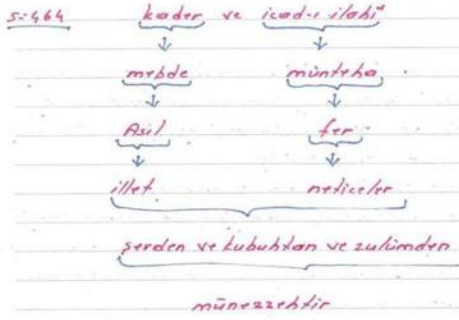 S:464 kader ve icad-ı ilahi
mebde münteha
Asıl fer
illet neticeler
şerden ve kubuhtan ve zulümden
münezzehtir